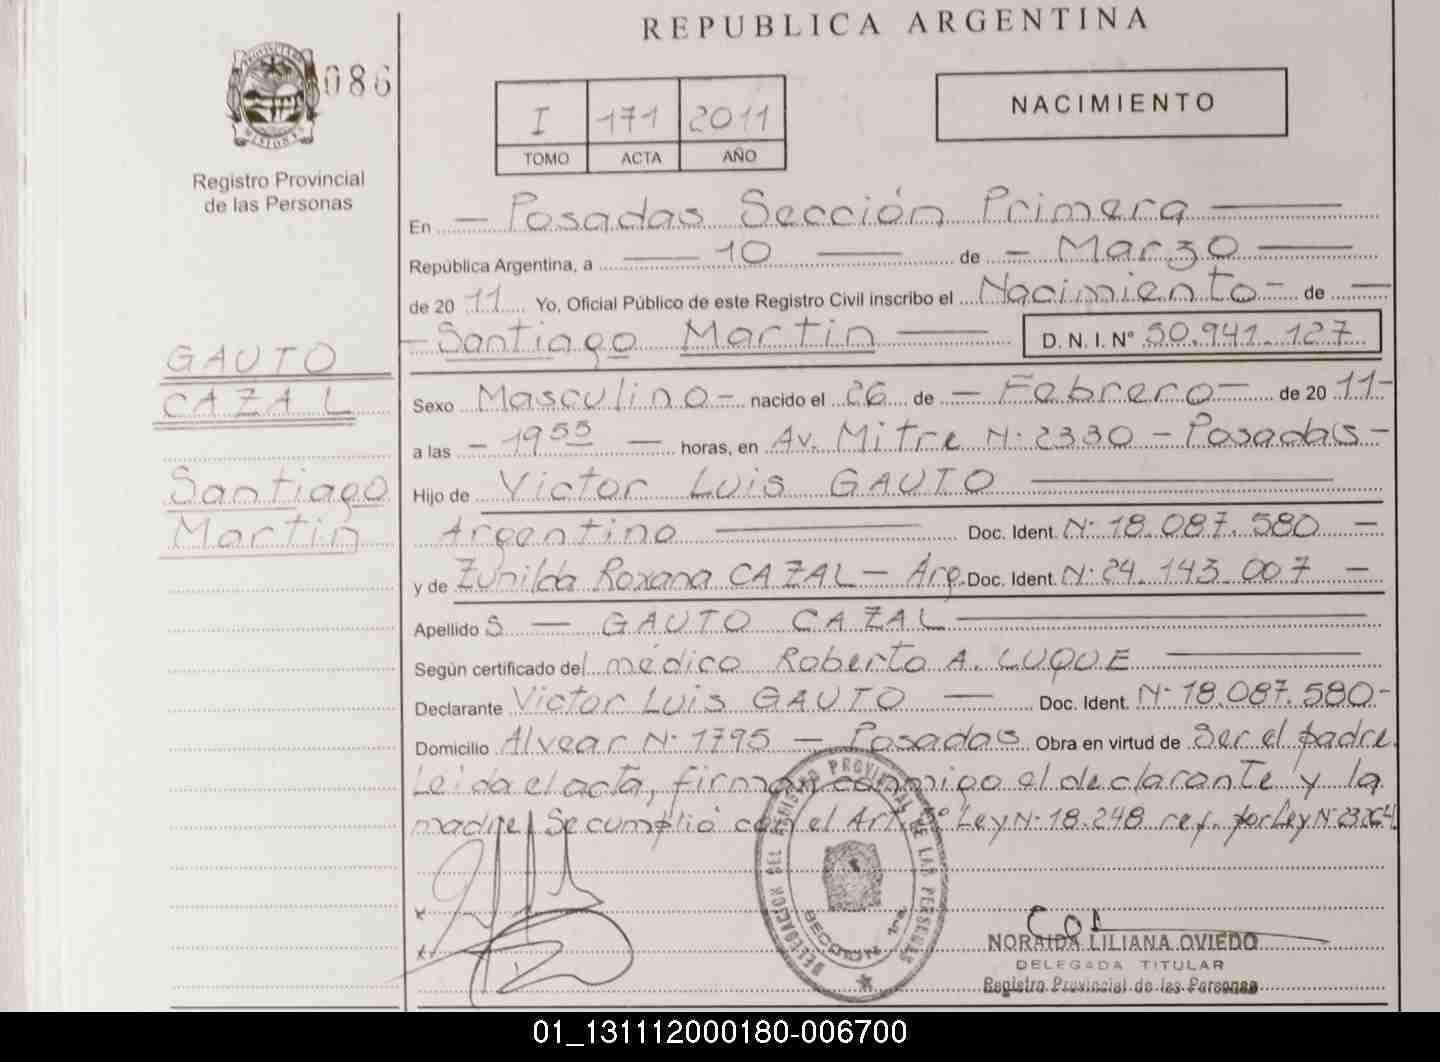 REPUBLICA ARGENTINA
086
I 171 2011
TOMO ACTA AÑO
NACIMIENTO
Registro Provincial
de las Personas
En — Posadas Sección Primera —
República Argentina, a — 10 — de — Marzo —
de 20 11 Yo, Oficial Público de este Registro Civil inscribo el Nacimiento – de —
– Santiago Martin — D. N. I. Nº 50.941.127
GAUTO
CAZAL
Santiago
Martin
Sexo Masculino – nacido el 26 de — Febrero – de 20 11 –
a las – 19 55 — horas, en Av. Mitre N. 2330 – Posadas –
Hijo de Victor Luis GAUTO —
Argentino — Doc. Ident. N. 18.087.580 —
y de Zunilda Roxana CAZAL – Arg. Doc. Ident. N. 24.143.007 —
Apellido S — GAUTO CAZAL —
Según certificado del médico Roberto A. LUQUE —
Declarante Victor Luis GAUTO — Doc. Ident. N. 18.087.580 –
Domicilio Alvear N. 1795 — Posadas Obra en virtud de Ser el padre.
Leida el acta, firman conmigo el declarante y la
madre. Se cumplió con el Art. Ley N. 18.248 ref. por Ley N.
DELEGACION DEL REGISTRO PROVINCIAL DE LAS PERSONAS
SECCION 1ra
NORAIDA LILIANA OVIEDO
DELEGADA TITULAR
Registro Provincial de las Personas
01_131112000180-006700